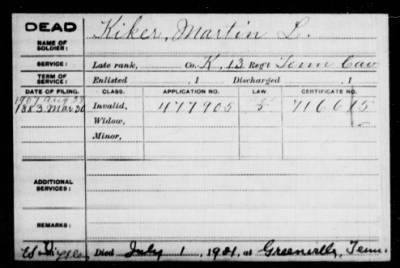 DEAD
NAME OF SOLDIER: Kiker, Martin L.
SERVICE: Late rank, Co. K, 13 Reg't Tenn Cav
TERM OF SERVICE: Enlisted , 1 Discharged , 1
DATE OF FILING. CLASS. APPLICATION NO. LAW CERTIFICATE NO.
1907 Aug
1883 Mar 30 Invalid, 477905 716615
Widow,
Minor,
ADDITIONAL SERVICES:
REMARKS:
Died July 1, 1921, at Greenville, Tenn.